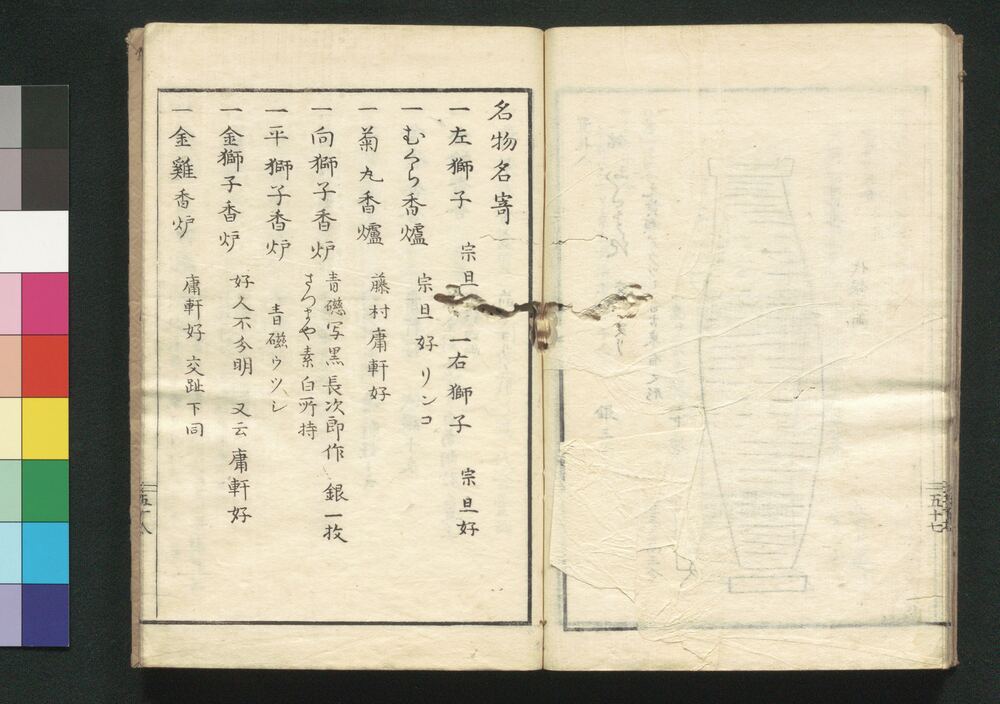 名物名寄
一左獅子 宗旦 一右獅子 宗旦好
一むくら香爐 宗旦好リンコ
一菊丸香爐 藤村庸軒好
一向獅子香炉 青礠写黒長次郎作 銀一枚
さつまや素白所持
一平獅子香炉 青磁ウツシ
一金獅子香炉 好人不分明 又云庸軒好
一金雞香炉 庸軒好 交趾下同
五十八
五十七